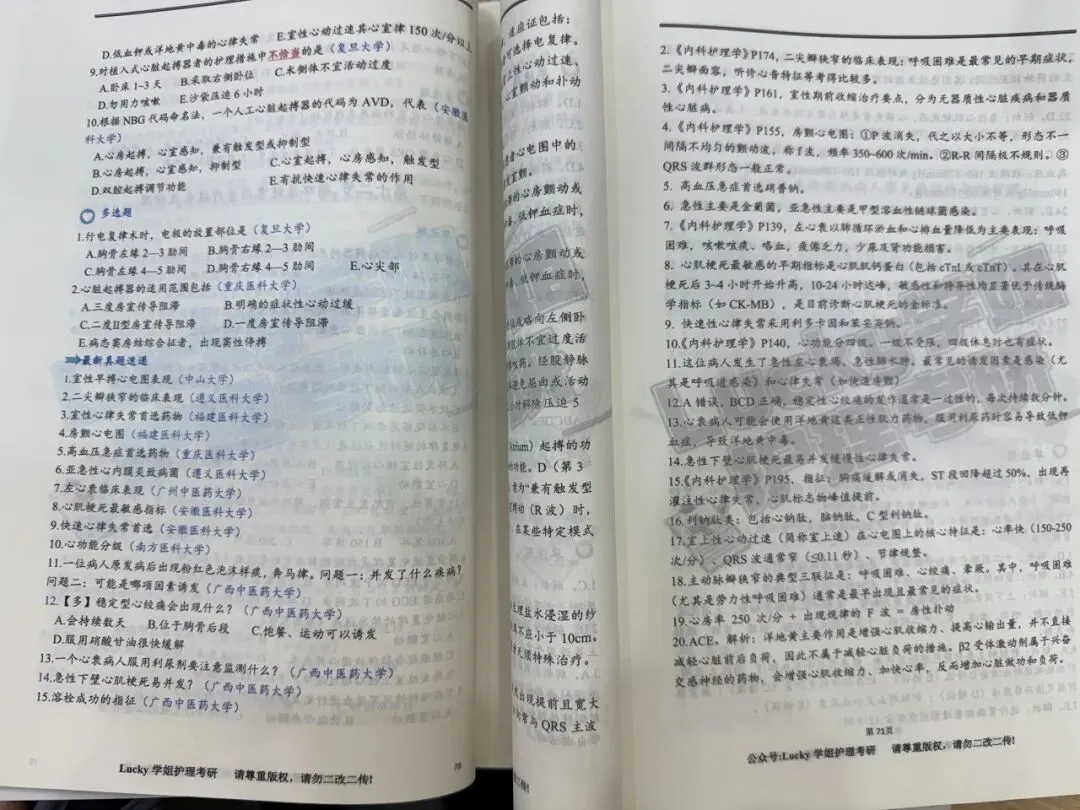 D.低血钾或洋地黄中毒的心律失常 E.室性心动过速其心室律150次/分以上
9.对植入式心脏起搏器者的护理措施中不恰当的是（复旦大学）
A.卧床1~3天 B.采取右侧卧位 C.术侧体不宜活动过度
D.勿用力咳嗽 E.沙袋压迫6小时
10.根据NBG代码命名法，一个人工心脏起搏器的代码为AVD，代表（安徽医
科大学）
A.心房起搏，心室感知，兼有触发型或抑制型
B.心房起搏，心室感知，抑制型 C.心室起搏，心房感知，触发型
D.双腔起搏调节功能 E.有抗快速心律失常的作用
多选题
1.行电复律术时，电极的放置部位是（复旦大学）
A.胸骨左缘2—3肋间 B.胸骨右缘2—3肋间
C.胸骨左缘4—5肋间 D.胸骨右缘4—5肋间 E.心尖部
2.心脏起搏器的适用范围包括（重庆医科大学）
A.三度房室传导阻滞 B.明确的症状性心动过缓
C.二度II型房室传导阻滞 D.一度房室传导阻滞
E.病态窦房结综合征者，出现窦性停搏
最新真题速递
1.室性早搏心电图表现（中山大学）
2.二尖瓣狭窄的临床表现（遵义医科大学）
3.室性心律失常首选药物（福建医科大学）
4.房颤心电图（福建医科大学）
5.高血压急症首选药物（重庆医科大学）
6.亚急性心内膜炎致病菌（遵义医科大学）
7.左心衰临床表现（广州中医药大学）
8.心肌梗死最敏感指标（安徽医科大学）
9.快速心律失常首选（安徽医科大学）
10.心功能分级（南方医科大学）
11.一位病人原发病后出现粉红色泡沫样痰，奔马律。问题一：并发了什么疾病？
问题二：可能是哪项因素诱发（广西中医药大学）
12.【多】稳定型心绞痛会出现什么？（广西中医药大学）
A.会持续数天 B.位于胸骨后段 C.饱餐、运动可以诱发
D.服用硝酸甘油很快缓解
13.一个心衰病人服用利尿剂要注意监测什么？（广西中医药大学）
14.急性下壁心肌梗死易并发？（广西中医药大学）
15.溶栓成功的指征（广西中医药大学）
70
Lucky学姐护理考研 请尊重版权，请勿二改二传!
适应证包括：
可选择电复律。
室上性心动过速、
心室颤动和扑动
患者心电图中的
室颤。
的心房颤动或
低钾血症时，
的心房颤动或
低钾血症时，
位或略向左侧卧
肢体不宜过度活
药。经股静脉
避免屈曲或活动
小时解除压迫 5
Atrium）起搏的功
功能。D（第 3
为“兼有触发型
搏动（R 波）时，
在某些特定模式
生理盐水浸湿的纱
不应小于 10cm。
无须特殊治疗。
出现提前且宽大
向常与 QRS 主波
二传!
2.《内科护理学》P174，二尖瓣狭窄的临床表现：呼吸困难是最常见的早期症状，
二尖瓣面容，听诊心音特征等考得比较多。
3.《内科护理学》P161，室性期前收缩治疗要点，分为无器质性心脏疾病和器质
性心脏病。
4.《内科护理学》P155，房颤心电图：①P波消失，代之以大小不等，形态不一
间隔不均匀的颤动波，称f波，频率350~600次/min。②R-R间隔极不规则。③
QRS波群形态一般正常。
5. 高血压急症首选硝普钠。
6. 急性主要是金葡菌，亚急性主要是甲型溶血性链球菌感染。
7.《内科护理学》P139，左心衰以肺循环淤血和心排血量降低为主要表现：呼吸
困难，咳嗽咳痰、咯血，疲倦乏力，少尿及肾功能损害。
8. 心肌梗死最敏感的早期指标是心肌肌钙蛋白（包括cTnI或cTnT）。其在心肌
梗死后3~4小时开始升高，10-24小时达峰，敏感性和特异性均显著优于传统酶
学指标（如CK-MB），是目前诊断心肌梗死的金标准。
9. 快速性心律失常采用利多卡因和苯妥英钠。
10.《内科护理学》P140，心功能分四级。一级不受限，四级休息时也有症状。
11.这位病人发生了急性左心衰竭、急性肺水肿。最常见的诱发因素是感染（尤
其是呼吸道感染）和心律失常（如快速房颤）
12.A错误，BCD正确，稳定性心绞痛的发作通常是一过性的，每次持续数分钟。
13.心衰病人可能会使用洋地黄这类正性肌力药物。服用利尿药时容易导致低钾
血症，导致洋地黄中毒。
14.急性下壁心肌梗死最易并发缓慢性心律失常。
15.《内科护理学》P195，指征：胸痛缓解或消失，ST段回降超过50%，出现再
灌注性心律失常，心肌标志物峰值提前。
16.利钠肽类：包括心钠肽，脑钠肽，C型利钠肽。
17.室上性心动过速（简称室上速）在心电图上的核心特征是：心率快（150-250
次/分）、QRS波通常窄（≤0.11秒）、节律规整。
18.主动脉瓣狭窄的典型三联征是：呼吸困难、心绞痛、晕厥。其中，呼吸困难
（尤其是劳力性呼吸困难）通常是最早出现且最常见的症状。
19.心房率 250 次/分 + 出现规律的 F 波 = 房性扑动
20.ACE。解析：洋地黄主要作用是增强心肌收缩力、提高心输出量，并不直接
减轻心脏前后负荷，因此不属于减轻心脏负荷的措施。β2受体激动剂属于兴奋
交感神经的药物，会增强心肌收缩力、加快心率，反而增加心脏做功和负荷。
第71页
公众号:Lucky学姐护理考研 请尊重版权，请勿二改二传!